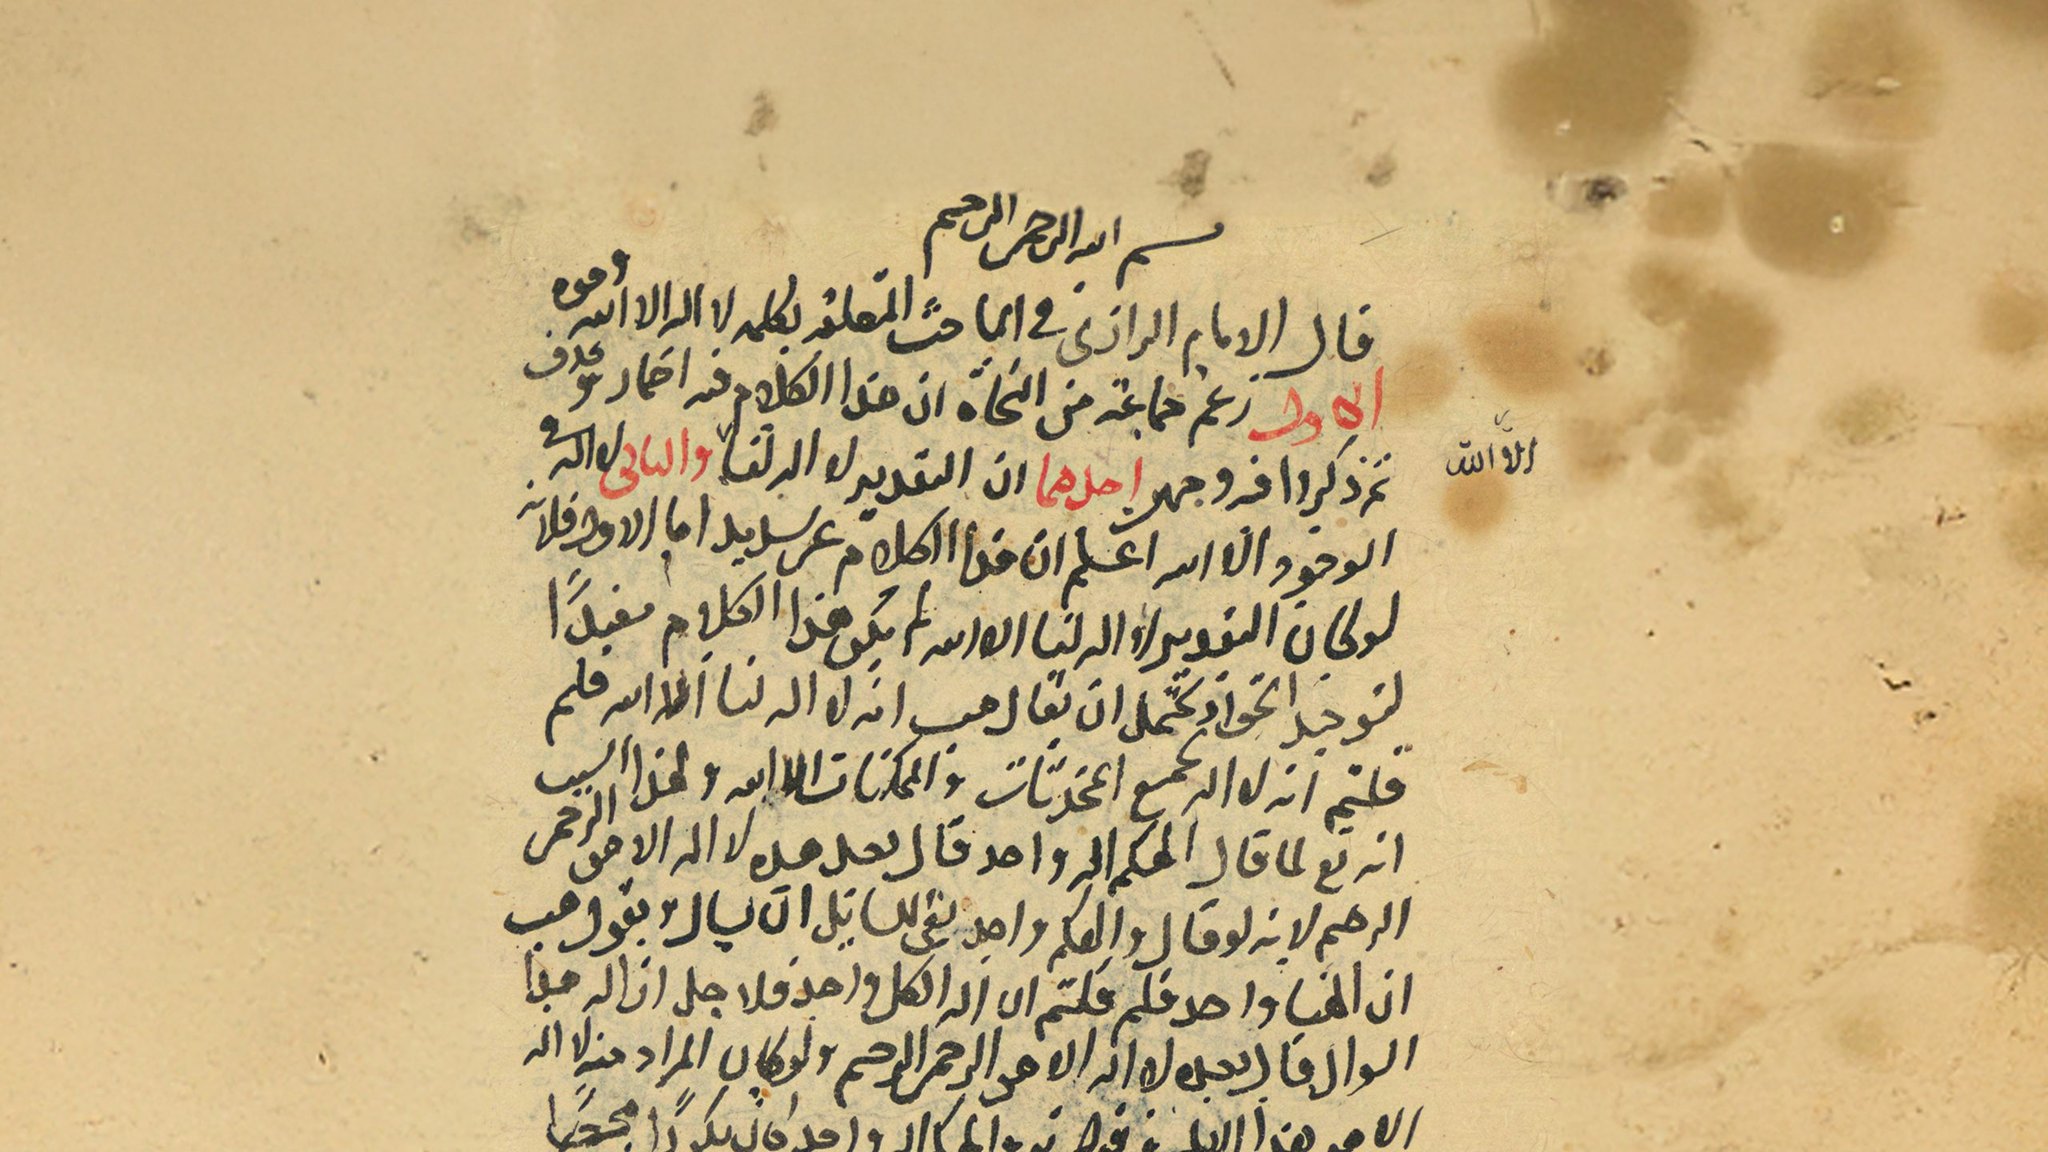 بسم الله الرحمن الرحيم
قال الامام الرازى فى المباحث المتعلقة بكلمه لا اله الا الله وهوه
الاول زعم جماعة من النحاة ان هذا الكلام فيه اضمار وحذف
ثم ذكروا فيه وجهين احدهما ان التقدير لا اله لنا والثانى لا اله فى
الوجود الا الله اعلم ان هذا الكلام غير سديد اما الاول فلانه
الا الله
لو كان التقدير لا اله لنا الا الله لم يكن هذا الكلام مفيدًا
لتوحيد الحق اذ يحتمل ان يقال هب انه لا اله لنا الا الله فلم
قلتم انه لا اله لجميع المحدثات والممكنات الا الله ولهذا السبب
انه تع لما قال الهكم اله واحد قال بعد هذه لا اله الا هو الرحمن
الرحيم لانه لو قال والهكم واحد بقى للسائل ان يسال ويقول هب
ان الهنا واحد فلم قلتم ان اله الكل واحد فلاجل ازاله هذا
السوال قال بعده لا اله الا هو الرحمن الرحيم ولو كان المراد منه لا اله
الا هو هذا قوله واحد كان تكرارًا محضًا